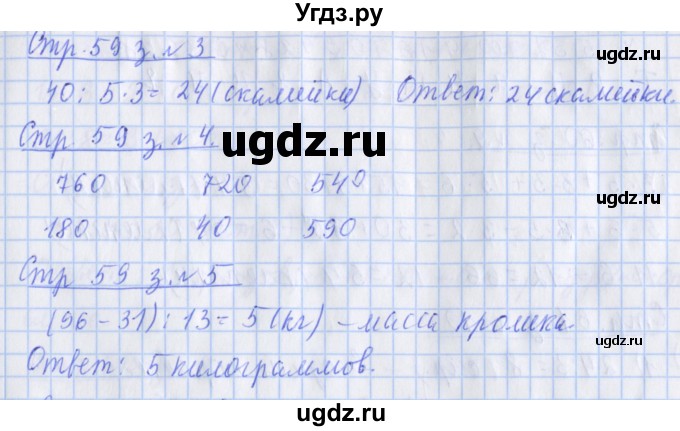 Угдз.ру
Стр. 59 з. №3
40 : 5 · 3 = 24 (скамейки) Ответ: 24 скамейки.
Стр 59 з. №4.
760 720 540
180 40 590
Стр 59 з. №5
(96 - 31) : 13 = 5 (кг) - масса кролика.
Ответ: 5 килограммов.
ugdz.ru
ugdz.ru
ugdz.ru
ugdz.ru
ugdz.ru
ugdz.ru